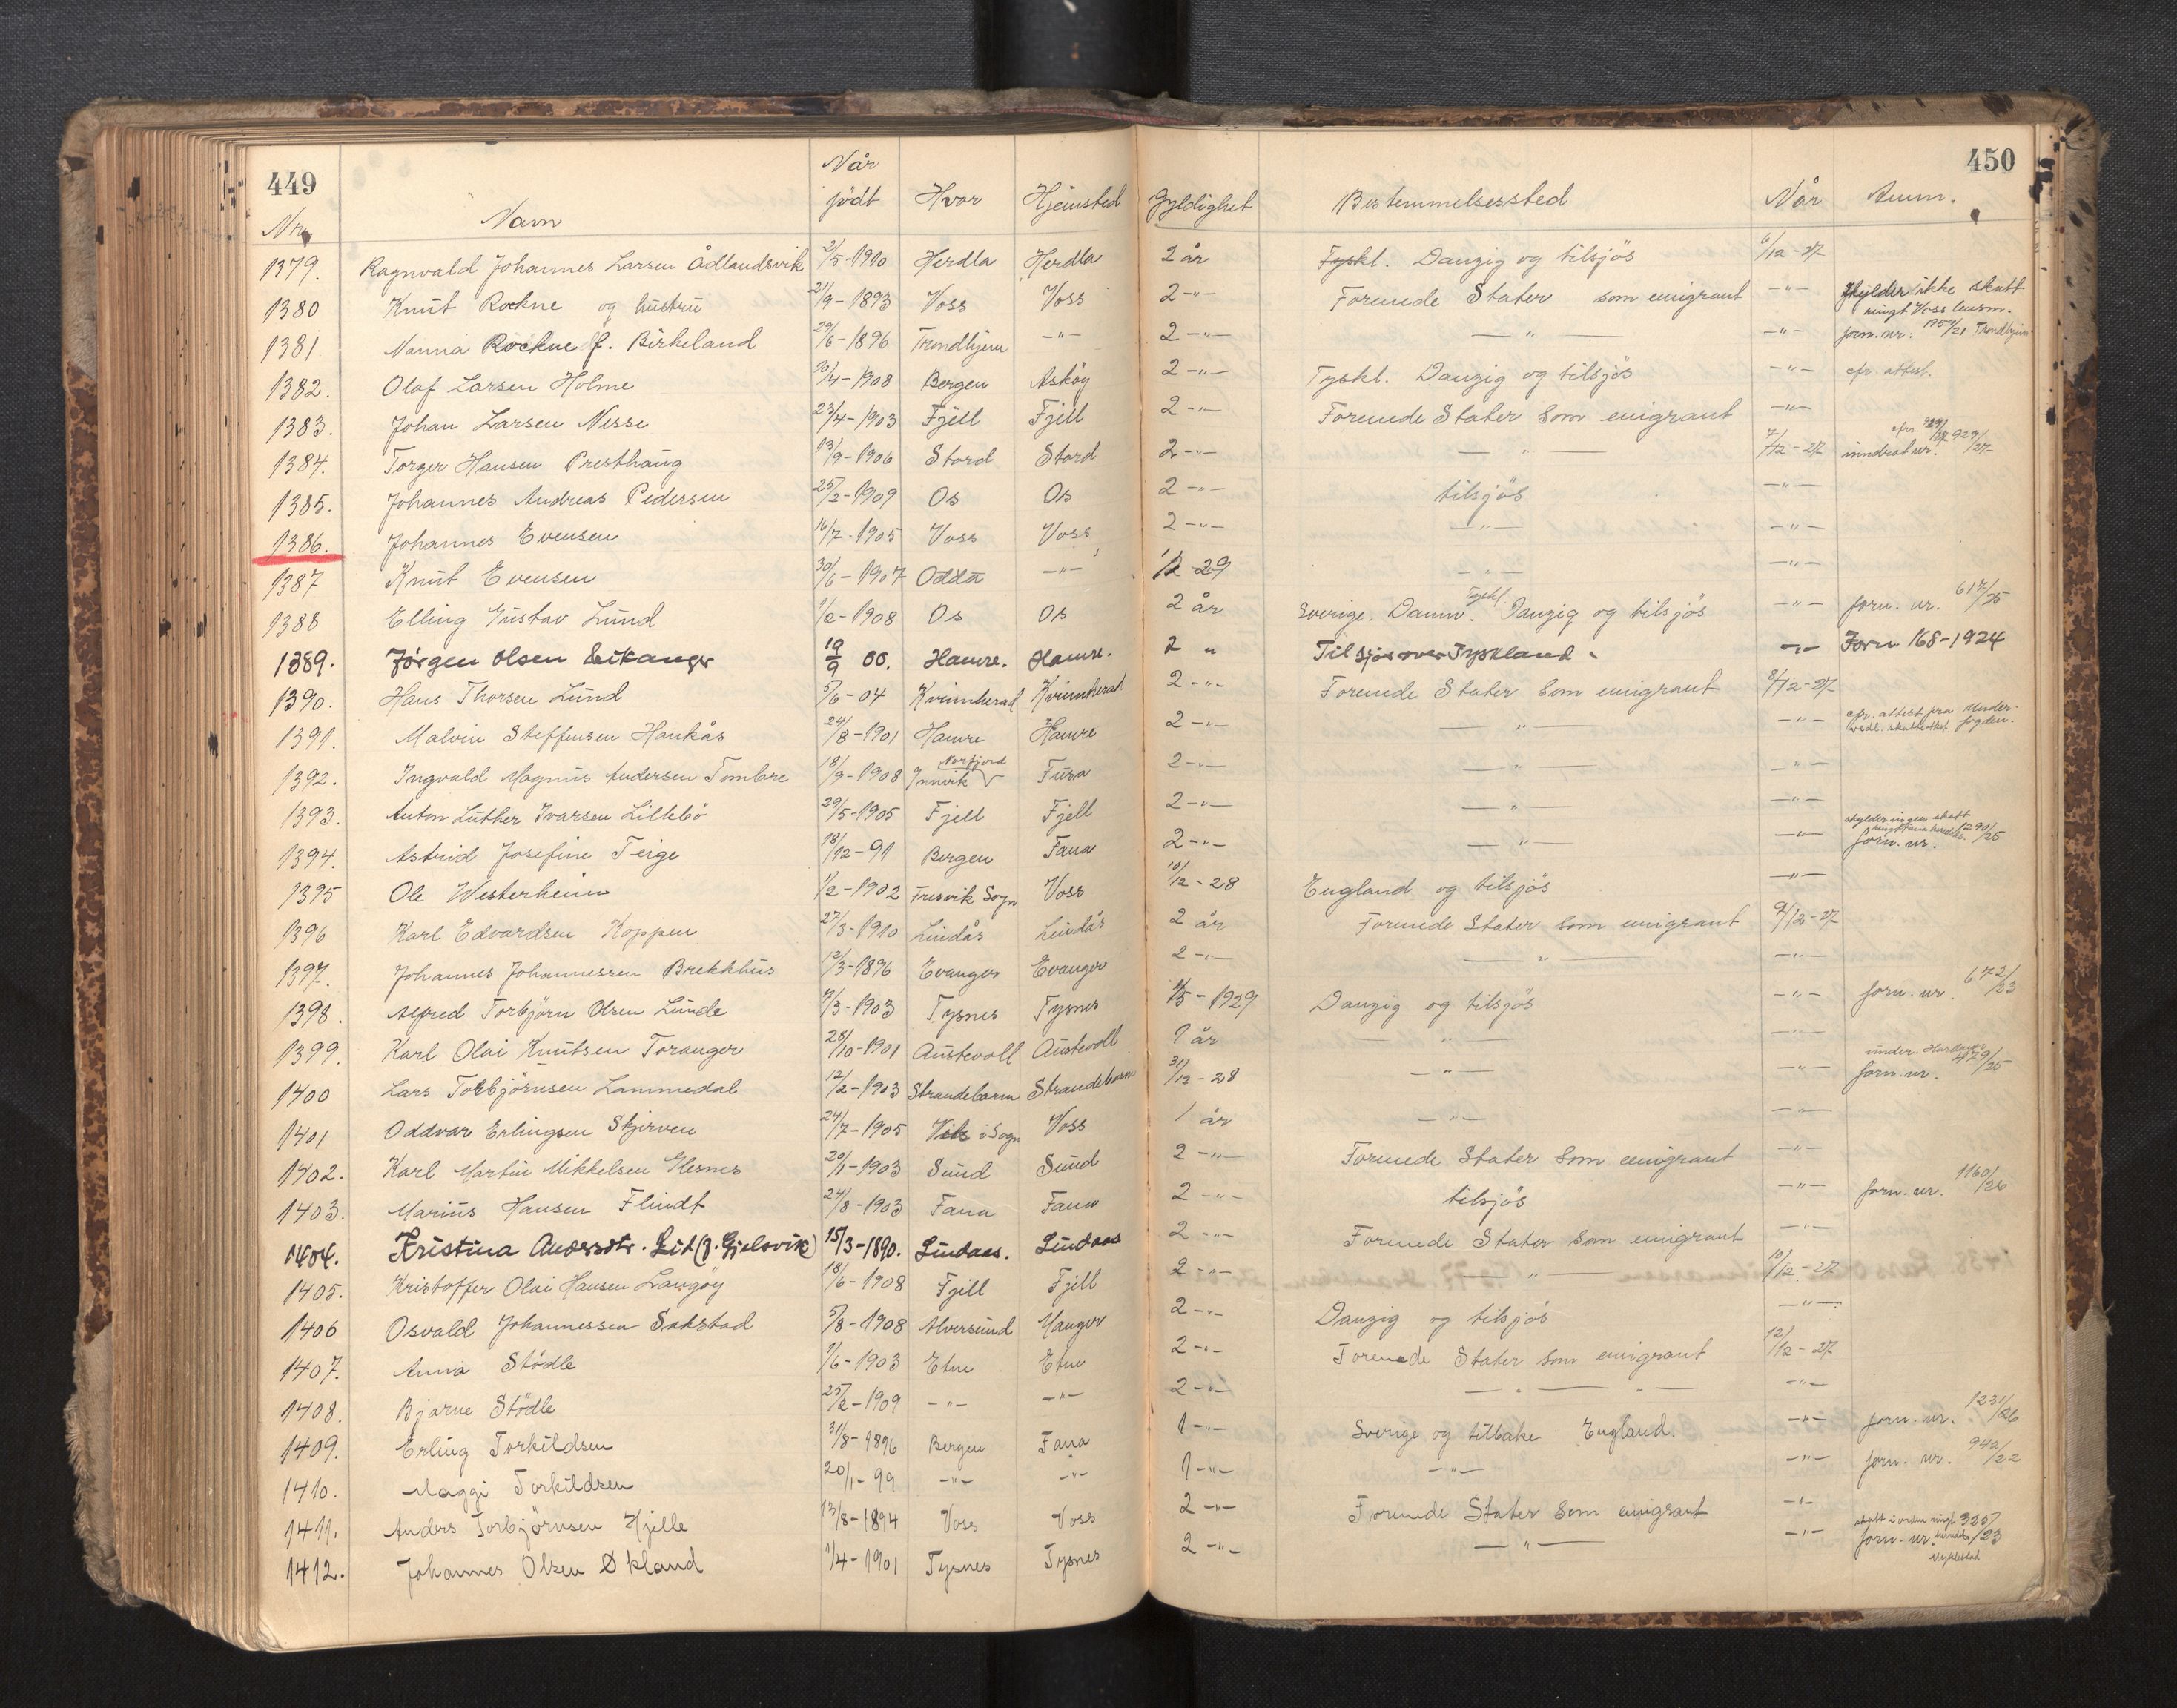 449
450
Nr. Navn Når födt Hvor Hjemsted Gyldighet Bestemmelsessted Når Anm.
1379. Ragnvald Johannes Larsen Ådlandsvik 2/5-1910 Herdla Herdla 2 år Tyskl. Danzig og tilsjös 6/12-27
1380 Knut Rockne og hustru 21/9-1893 Voss Voss 2-"- Forenede Stater som emigrant -"- skylder ikke skatt
1381 Nanna Rockne f. Birkeland 29/6-1896 Trondhjem -"- 2-"- -"- -"- forn. nr. 1954/21 Trondhjem
1382. Olaf Larsen Holme 26/4-1908 Bergen Asköy 2-"- Tyskl. Danzig og tilsjös -"- cfr. attest.
1383. Johan Larsen Nesse 23/4-1903 Fjell Fjell 2-"- Forenede Stater som emigrant -"-
1384. Torger Hansen Presthaug 13/9-1906 Stord Stord 2-"- -"- 7/12-27 inndrat nr. 929/27
1385. Johannes Andreas Pedersen 25/2-1909 Os Os 2-"- tilsjös -"-
1386. Johannes Evensen 16/7-1905 Voss Voss 2-"- -"- -"-
1387 Knut Evensen 30/6-1907 Odda -"- 1/2-29 -"- -"-
1388 Elling Gustav Lund 1/2-1908 Os Os 2 år Sverige. Danm. Tyskl. Danzig og tilsjös -"- forn. nr. 617/25
1389. Jörgen Olsen Eikanger 19/9 00. Hamre. Hamre. 2 " Til sjös over Tyskland -"- Forn 168-1924
1390. Hans Thorsen Lund 5/6-04 Kvinnherad Kvinnherad 2-"- Forenede Stater som emigrant 8/12-27
1391. Malvin Steffensen Haukås 24/8-1901 Hamre Hamre 2-"- -"- -"- cfr. attest fra Underfogden.
1392. Ingvald Magnus Andersen Tombre 18/9-1908 Innvik Norfjord Fusa 2-"- -"- -"-
1393. Anton Luther Ivarsen Lillebö 29/5-1905 Fjell Fjell 2-"- -"- -"-
1394. Astrid Josefine Teige 18/12-91 Bergen Fana 2-"- -"- -"- skylder ingen skatt forn. nr. 1290/25
1395 Ole Westerheim 1/2-1902 Fresvik Sogn Voss 10/12-28 England og tilsjös -"-
1396 Karl Edvardsen Koppen 27/3-1910 Lindås Lindås 2 år Forenede Stater som emigrant 9/12-27
1397. Johannes Johannessen Brekkhus 12/3-1896 Evanger Evanger 2-"- -"- -"-
1398. Alfred Torbjörn Olsen Lunde 7/3-1903 Tysnes Tysnes 1/5-1929 Danzig og tilsjös -"- forn. nr. 672/23
1399. Karl Olai Knutsen Toranger 28/10-1901 Austevoll Austevoll 1 år -"- -"-
1400 Lars Torbjörnsen Lammedal 12/2-1903 Strandebarm Strandebarm 31/12-28 -"- -"- forn. nr. 479/25
1401 Oddvar Erlingsen Skjerven 24/7-1905 Vik i Sogn Voss 1 år -"- -"-
1402. Karl Martin Mikkelsen Glesnes 20/1-1903 Sund Sund 2-"- Forenede Stater som emigrant -"-
1403. Marius Hansen Flindt 24/8-1903 Fana Fana 2-"- tilsjös -"- forn. nr. 1160/26
1404. Kristina Andersdtr. Lid (f. Gjelsvik) 15/3-1890. Lindaas. Lindaas 2-"- Forenede Stater som emigrant -"-
1405. Kristoffer Olai Hansen Langöy 18/6-1908 Fjell Fjell 2-"- -"- 10/12-27
1406 Osvald Johannessen Sakstad 5/8-1908 Alversund Manger 2-"- Danzig og tilsjös -"-
1407. Anna Stödle 1/6-1903 Etne Etne 2-"- Forenede Stater som emigrant 12/12-27
1408. Bjarne Stödle 25/2-1909 -"- -"- 2-"- -"- -"-
1409. Erling Torkildsen 31/8-1896 Bergen Fana 1-"- Sverige og tilbake England. -"- forn. nr. 1231/26
1410. Maggi Torkildsen 20/1-99 -"- -"- 1-"- -"- -"- forn. nr. 942/22
1411. Anders Torbjörnsen Hjelle 13/8-1894 Voss Voss 2-"- Forenede Stater som emigrant -"-
1412. Johannes Olsen Økland 1/4-1901 Tysnes Tysnes 2-"- -"- -"- forn. nr. 335/23